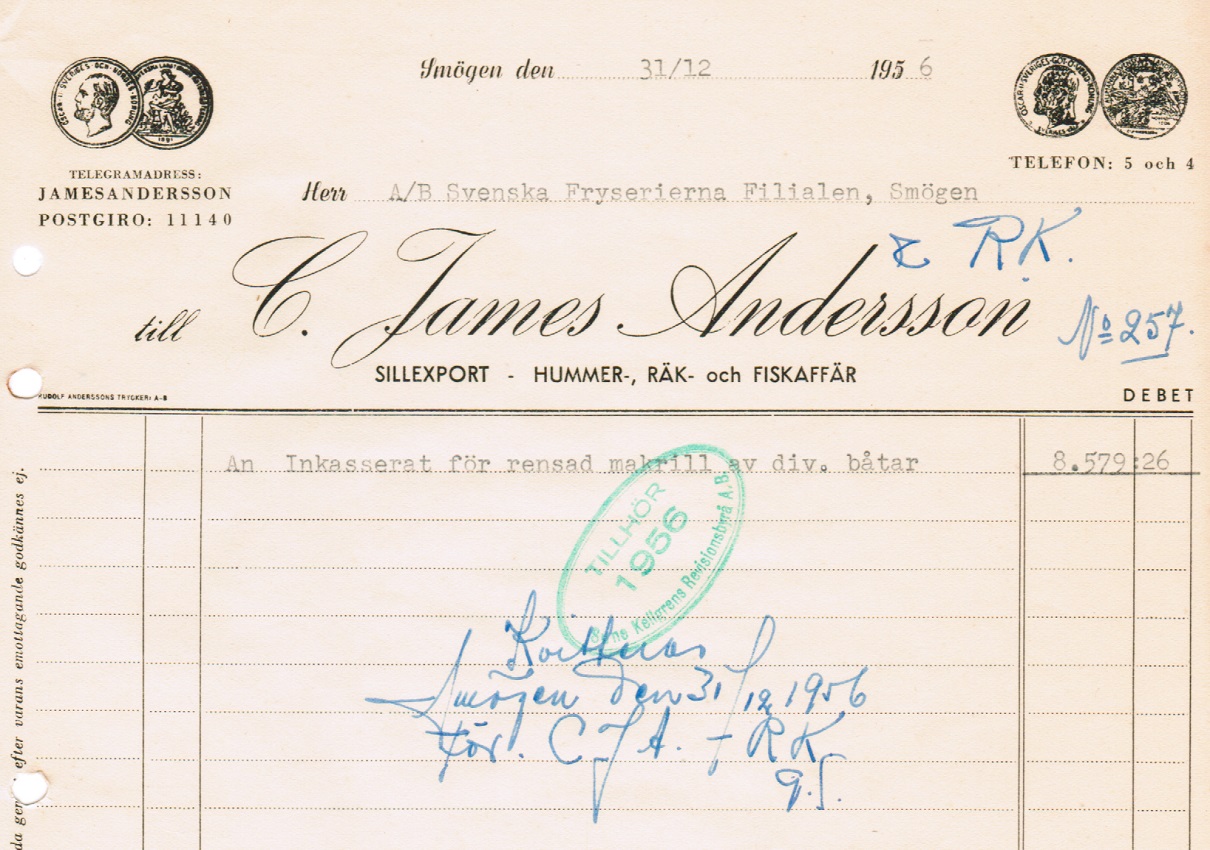 Smögen den 31/12 1956
TELEGRAMADRESS:
JAMESANDERSSON
POSTGIRO: 11140
TELEFON: 5 och 4
Herr A/B Svenska Fryserierna Filialen, Smögen
R.K.
till C. James Andersson
No 257.
SILLEXPORT - HUMMER-, RÄK- och FISKAFFÄR
RUDOLF ANDERSSONS TRYCKERI A-B
DEBET
An Inkasserat för rensad makrill av div. båtar 8.579:26
TILLHÖR
1956
Kellgrens Revisionsbyrå A.B.
Kvitteras
Smögen den 31/12 1956
För. C J A. - R K.
efter varans emottagande godkännes ej.